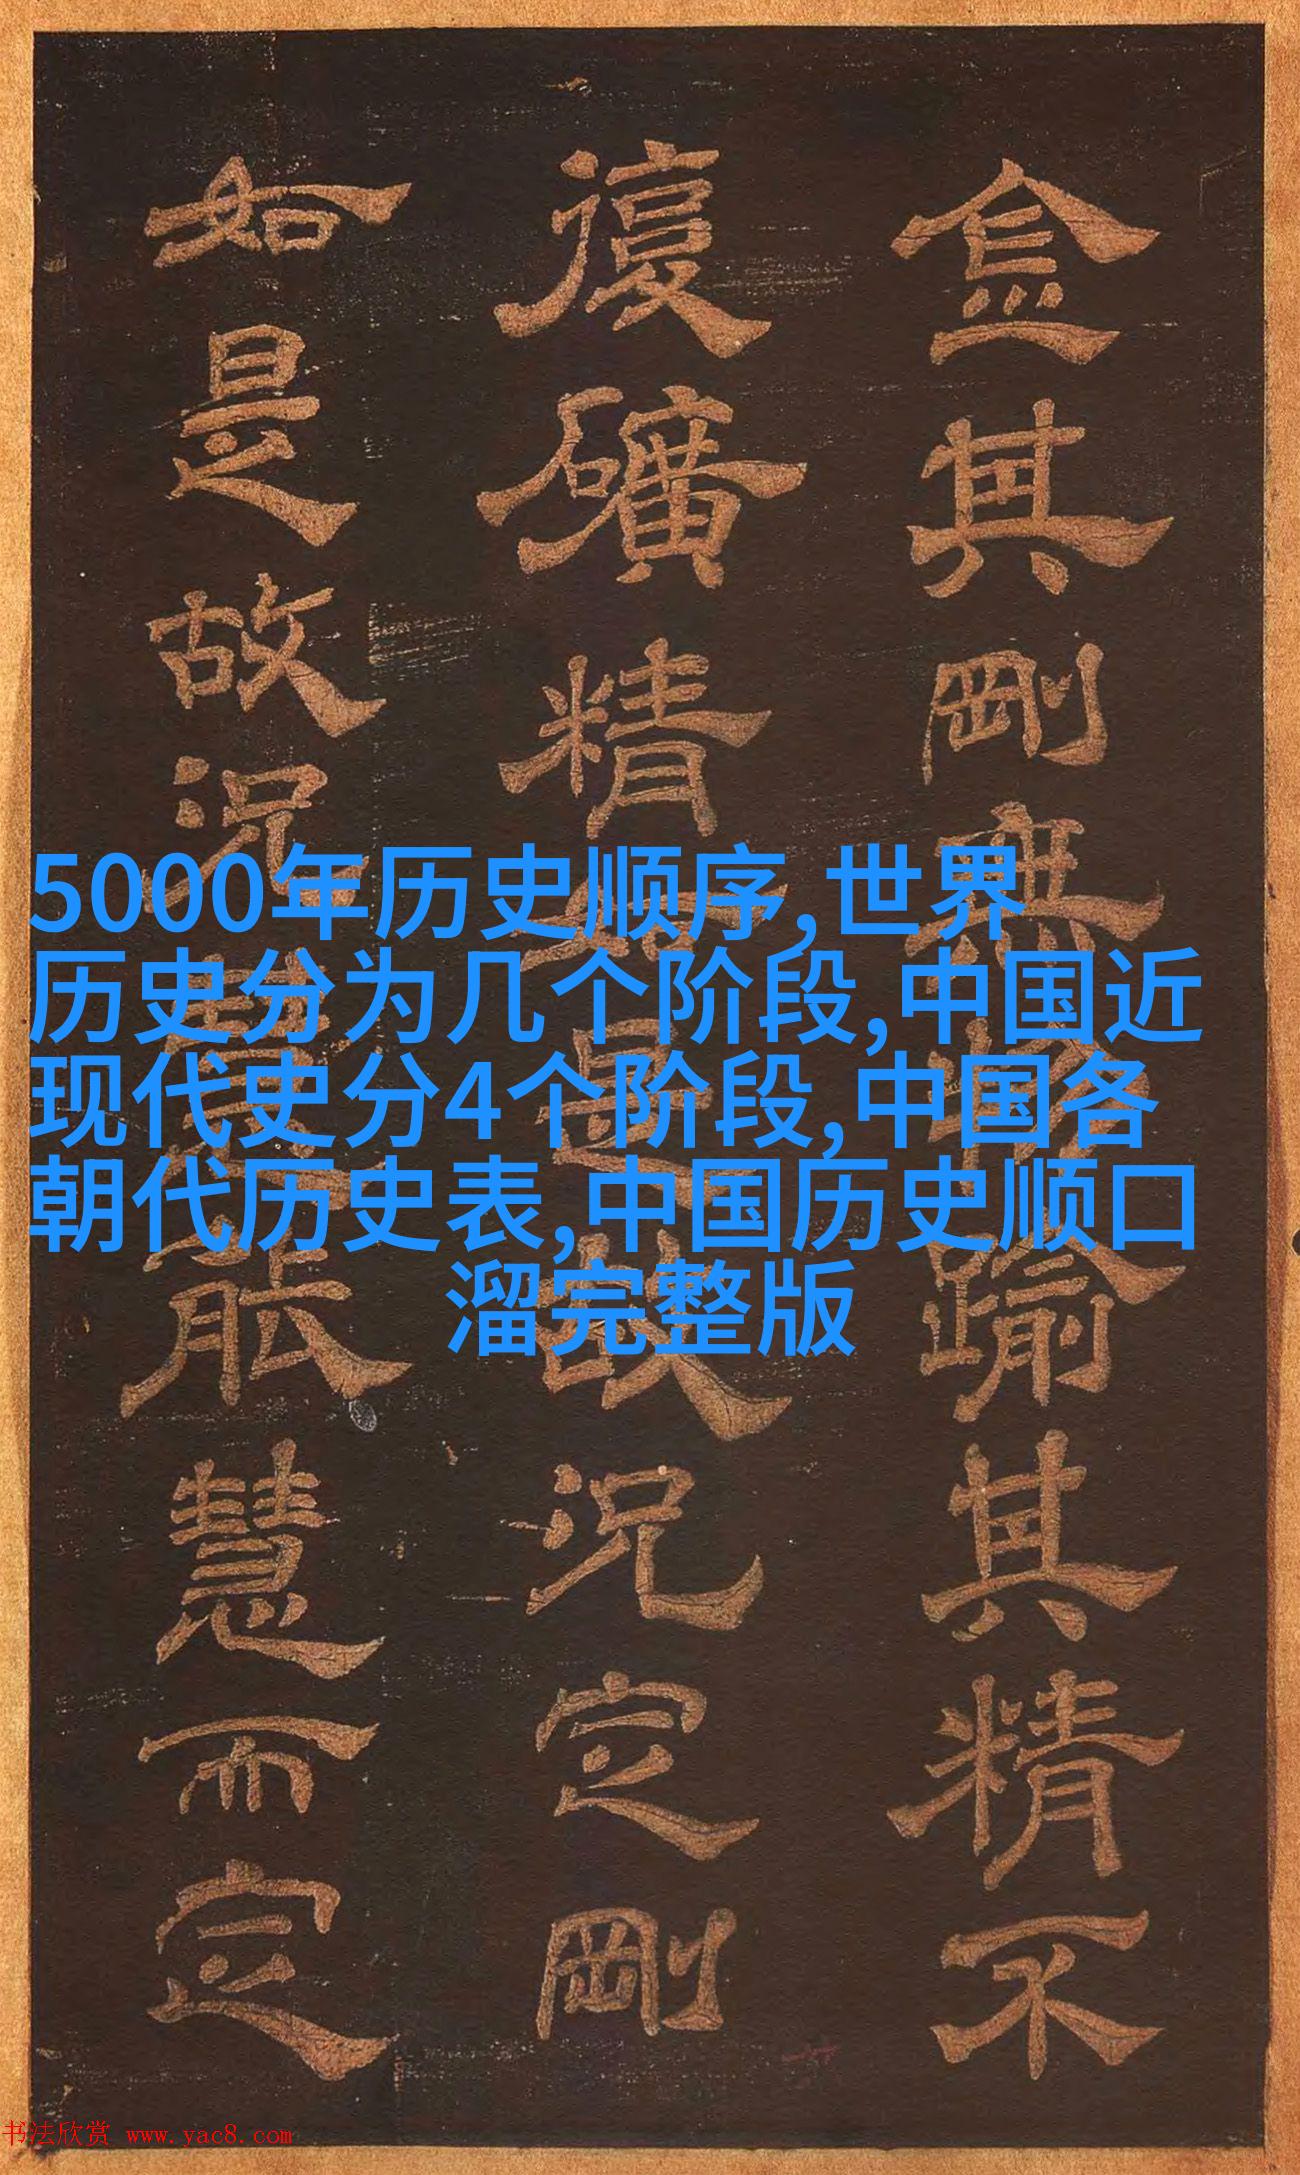 5000年历史顺序,世界
历史分为几个阶段,中国近
现代史分4个阶段,中国各
朝代历史表,中国历史顺口
溜完整版
金其剛無踰其精不
復礦精如是故況定剛
如是故況能慧而定
书法欣赏 www.yac8.com